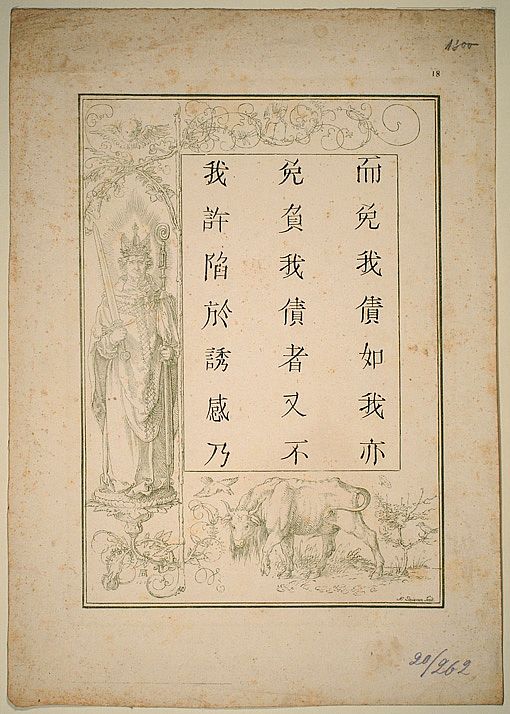 18
而免我債如我亦
免負我債者又不
我許陷於誘感乃
20/262